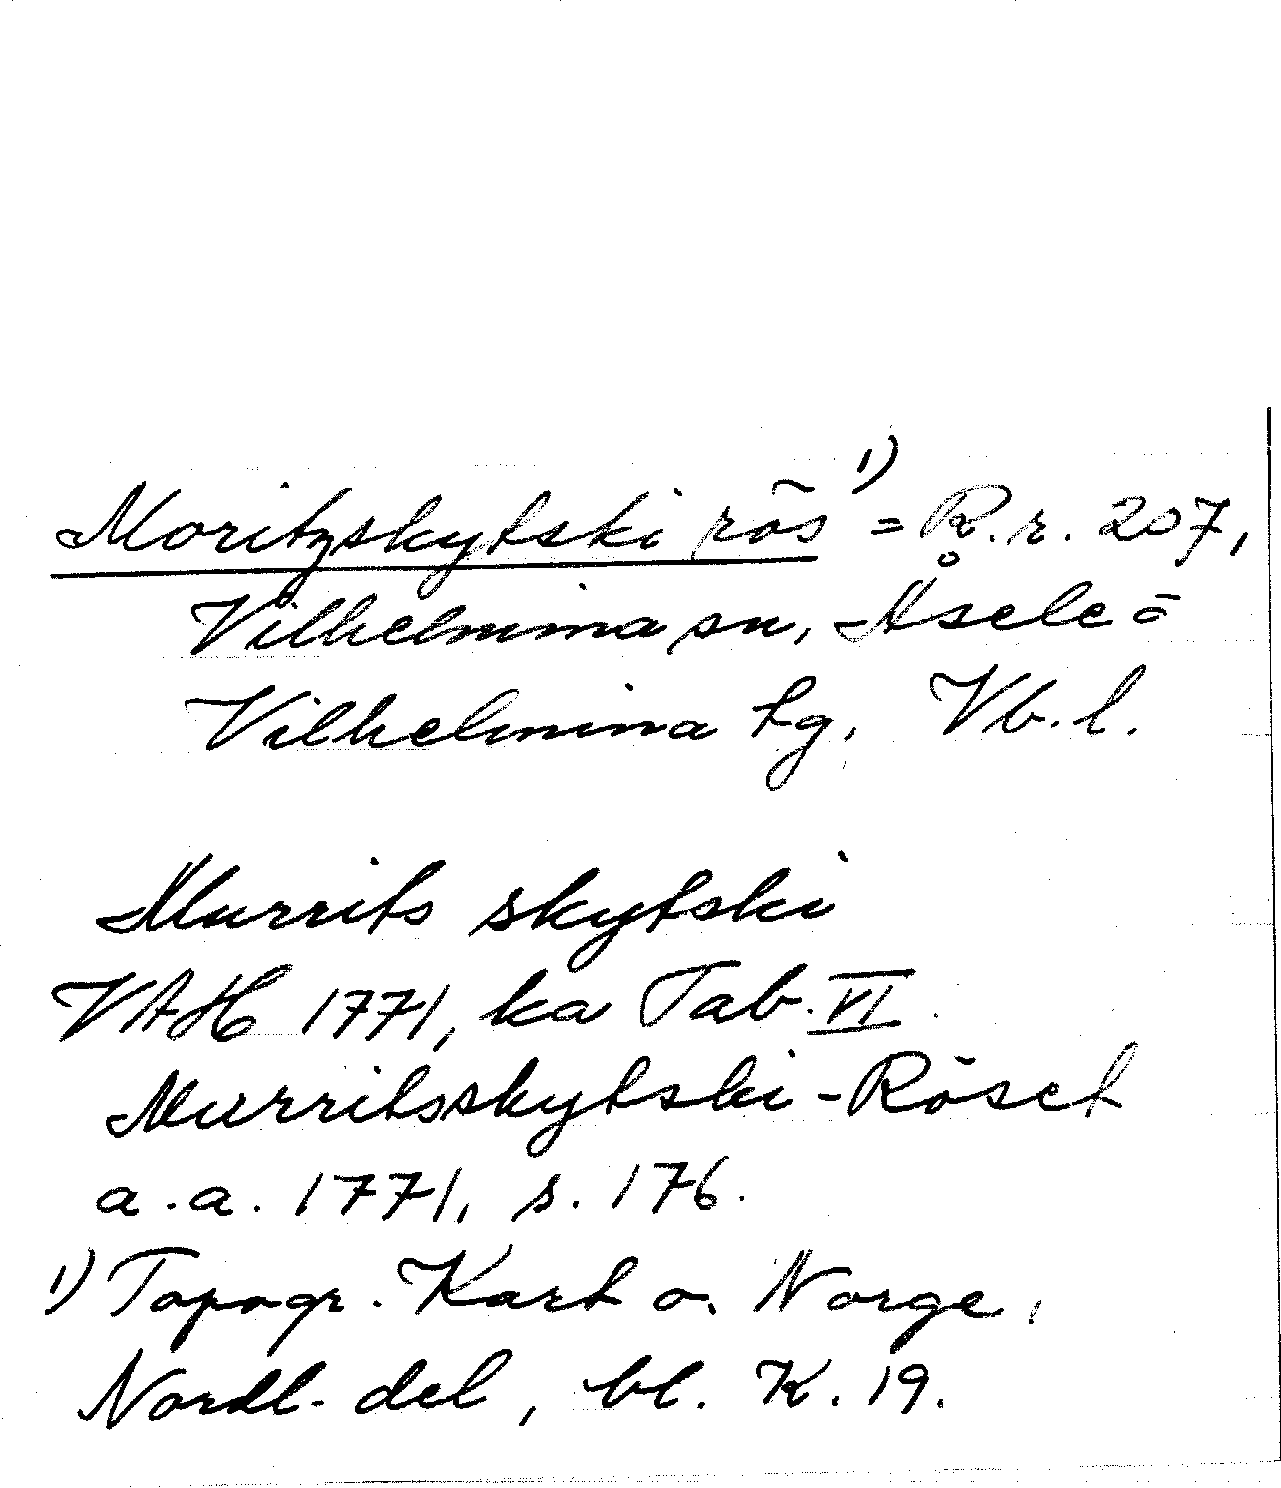 Moritzskytski rös ¹⁾ = R.r. 207,
Vilhelmina sn, Åsele =
Vilhelmina tg, Vb. l.
Murrits skytski
VAH 1771, ka Tab. VI.
Murritsskytski-Röset
a.a. 1771, s. 176.
¹⁾ Topogr. Kart o. Norge,
Nordl. del, bl. K. 19.